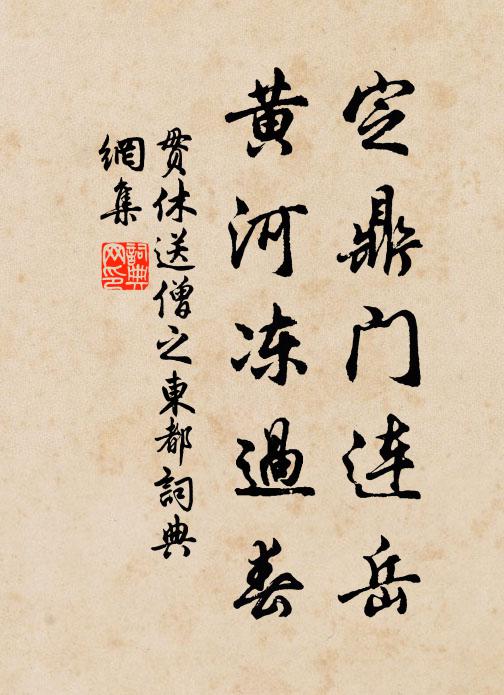 定鼎门连岳
黄河冻過春
贯休送僧之東都詞典
網集
詞典網印